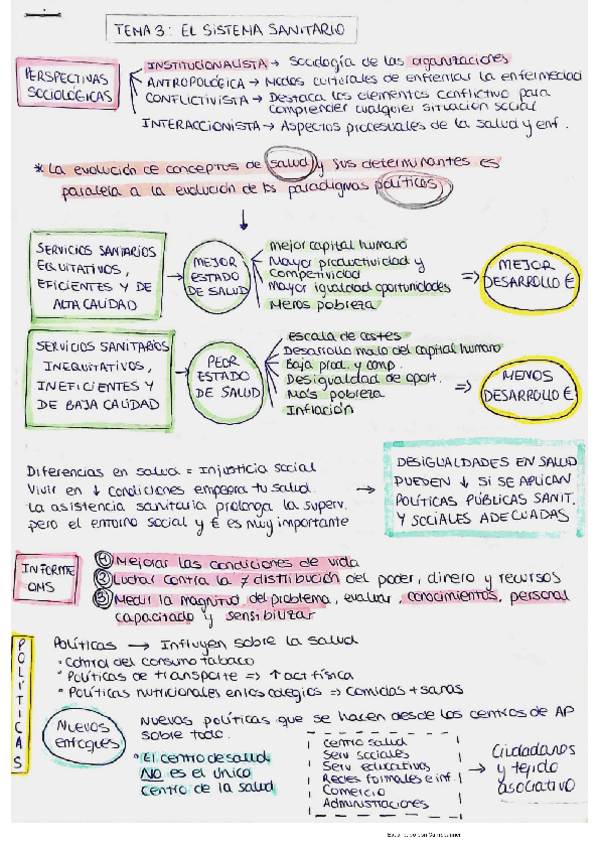 TEMA 3: EL SISTEMA SANITARIO
PERSPECTIVAS
SOCIOLÓGICAS
INSTITUCIONALISTA → Sociología de las organizaciones
ANTROPOLÓGICA → Modos culturales de enfrentar la enfermedad
CONFLICTIVISTA → Destaca los elementos conflictivo para
comprender cualquier situación social
INTERACCIONISTA → Aspectos procesuales de la salud y enf.
* La evolución de conceptos de salud y sus determinantes es
paralela a la evolución de los paradigmas políticos
SERVICIOS SANITARIOS
EQUITATIVOS,
EFICIENTES Y DE
ALTA CALIDAD
MEJOR
ESTADO
DE SALUD
mejor capital humano
Mayor productividad y
competividad
Mayor igualdad oportunidades
Menos pobreza
MEJOR
DESARROLLO €
SERVICIOS SANITARIOS
INEQUITATIVOS,
INEFICIENTES Y
DE BAJA CALIDAD
PEOR
ESTADO
DE SALUD
escala de costes
Desarrollo malo del capital humano
Baja prod. y comp.
Desigualdad de oport.
Más pobreza
Inflación
MENOS
DESARROLLO €
Diferencias en salud = Injusticia social
Vivir en ↓ condiciones empeora tu salud.
La asistencia sanitaria prolonga la superv.
pero el entorno social y € es muy importante
DESIGUALDADES EN SALUD
PUEDEN ↓ SI SE APLICAN
POLÍTICAS PÚBLICAS SANIT.
Y SOCIALES ADECUADAS
INFORME
OMS
① Mejorar las condiciones de vida
② Luchar contra la ≠ distribución del poder, dinero y recursos
③ Medir la magnitud del problema, evaluar, conocimientos, personal
capacitado y sensibilizar
POLÍTICAS
Políticas → Influyen sobre la salud
• Control del consumo tabaco
• Políticas de transporte => ↑ act física
• Políticas nutricionales en los colegios => comidas + sanas
Nuevos
enfoques
Nuevas políticas que se hacen desde los centros de AP
sobre todo.
• El centro de salud
NO es el único
centro de la salud
Centro salud
Serv sociales
Serv educativos
Redes formales e inf.
Comercio
Administraciones
Ciudadanos
y tejido
asociativo